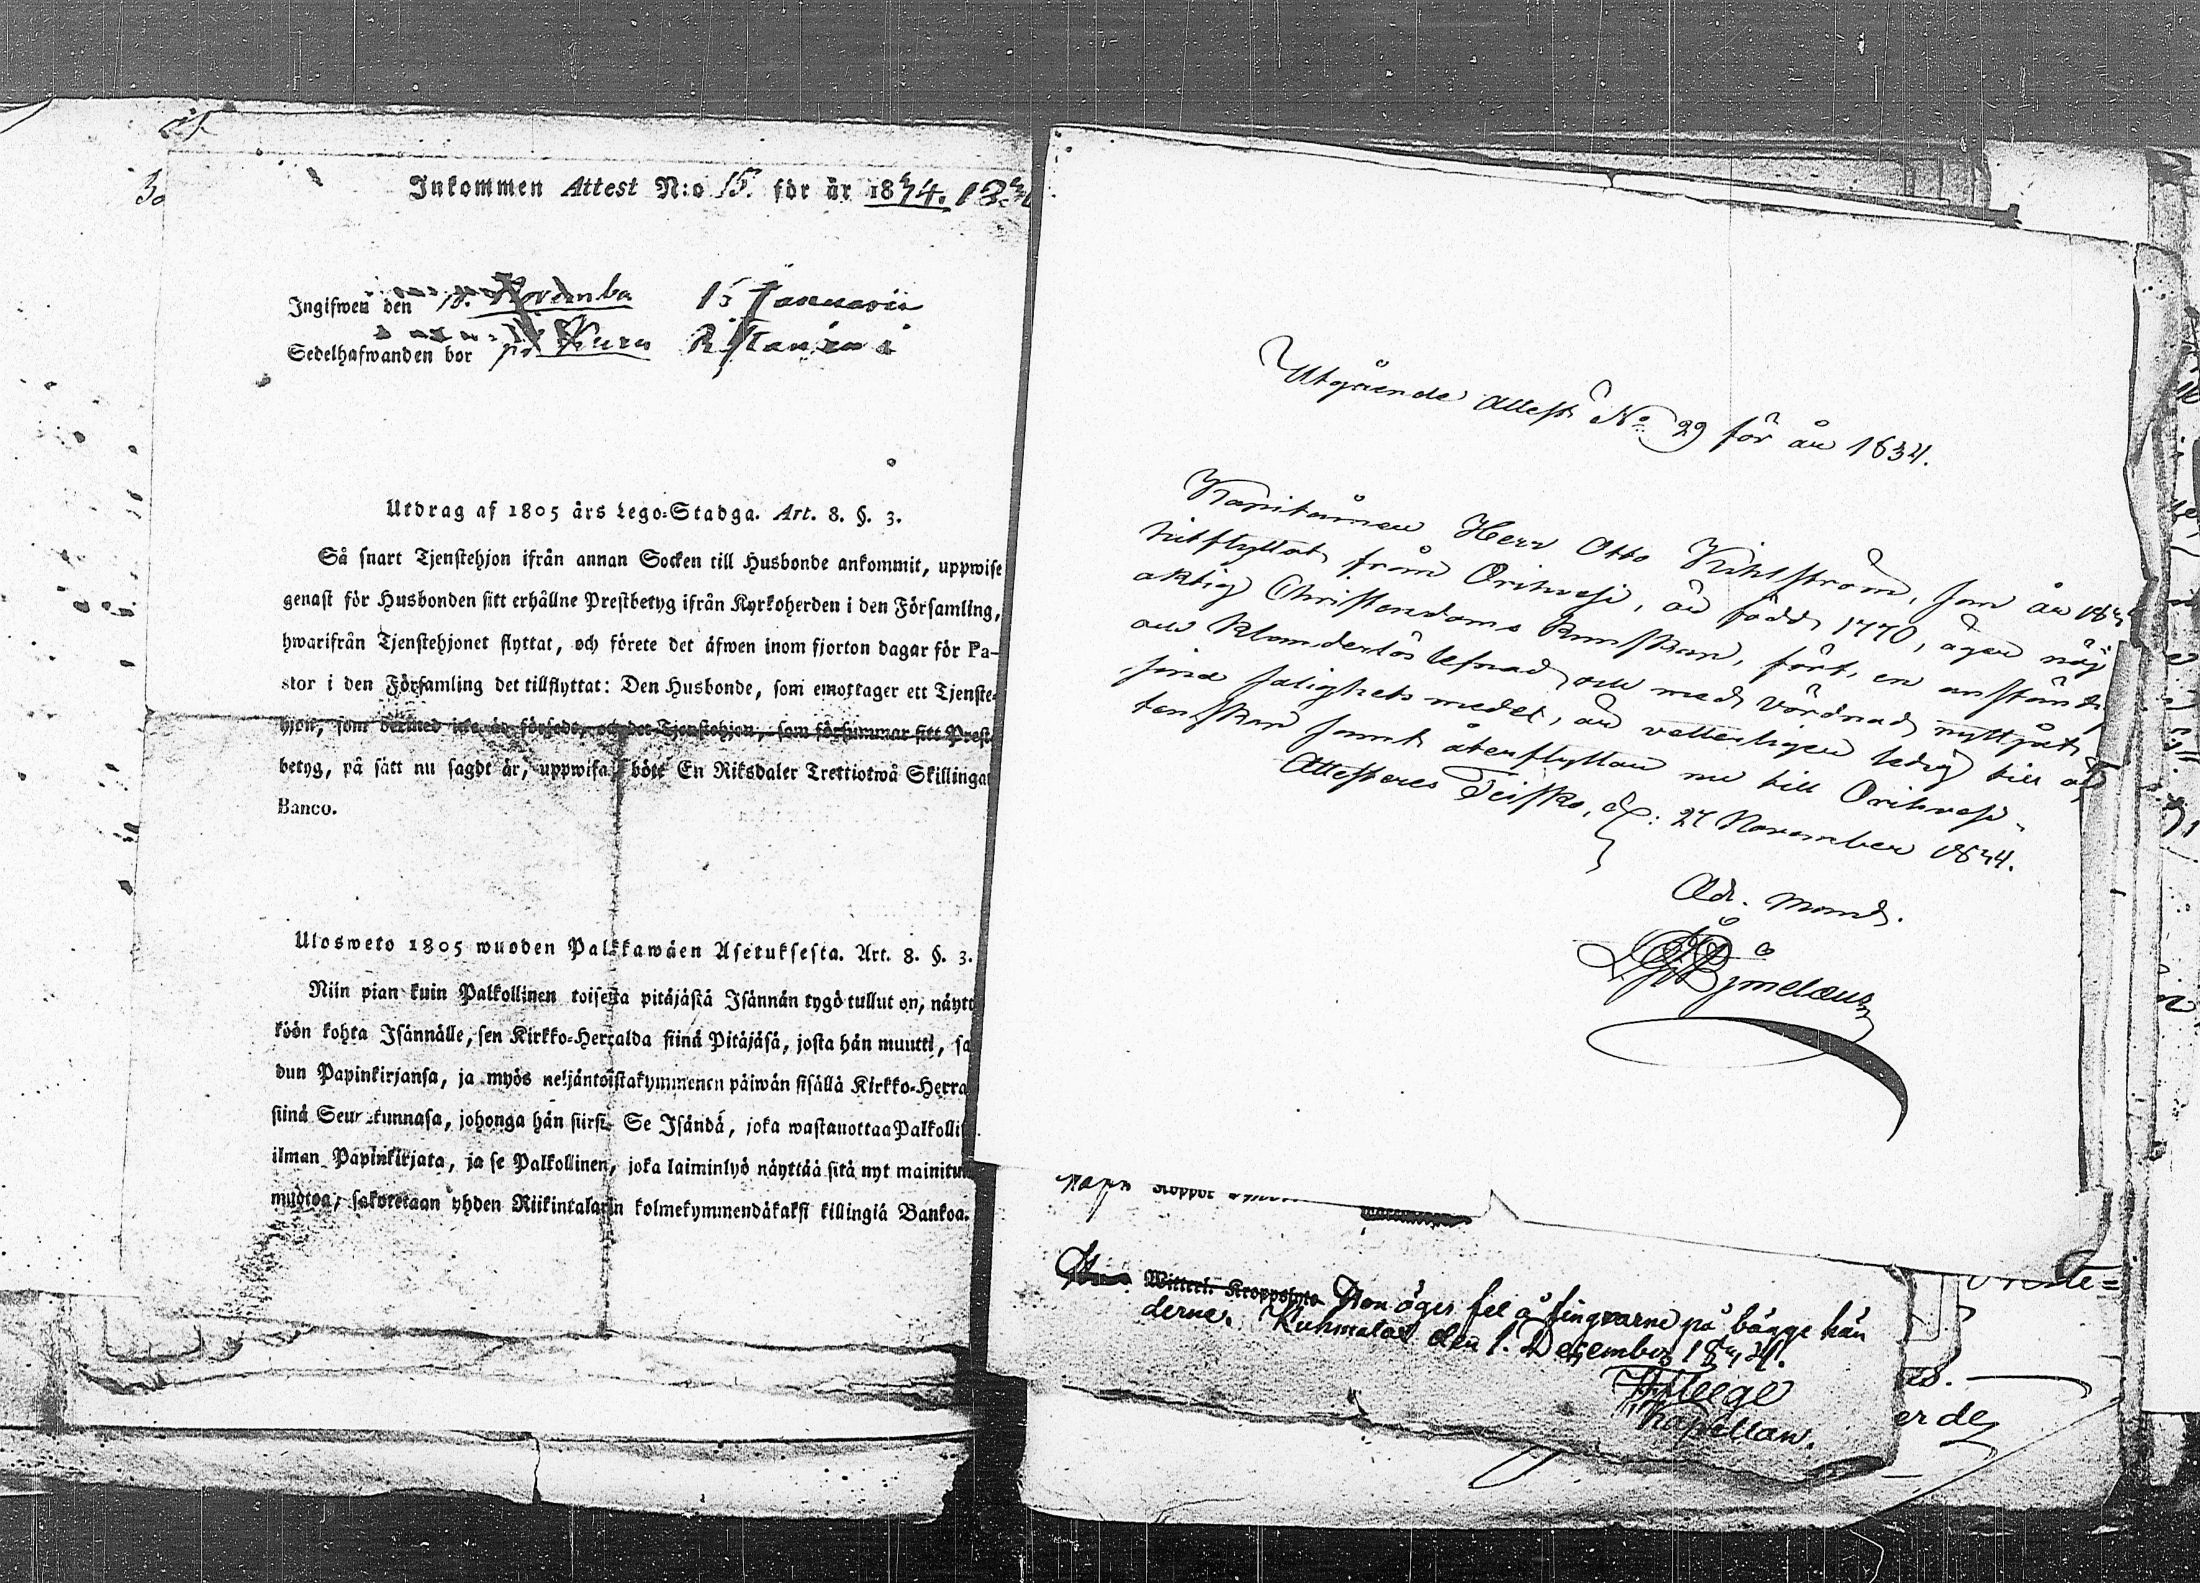 Inkommen Attest N:o 15. för år 1834.
Ingifwen den 15 Januarii
Sedelhafwanden bor på Kuru
Utdrag af 1805 års Lego-Stadga. Art. 8. §. 3.
Så snart Tjenstehjon ifrån annan Socken till Husbonde ankommit, uppwise
genast för Husbonden sitt erhållne Prestbetyg ifrån Kyrkoherden i den Församling,
hwarifrån Tjenstehjonet flyttat, och förete det äfwen inom fjorton dagar för Pa-
stor i den Församling det tillflyttat: Den Husbonde, som emottager ett Tjenste-
hjon, som dermed icke är försedt, och det Tjenstehjon, som försummar sitt Prest-
betyg, på sätt nu sagdt är, uppwisa, böte En Riksdaler Trettiotwå Skillingar
Banco.
Ulosweto 1805 wuoden Palkkawäen Asetuksesta. Art. 8. §. 3.
Niin pian kuin Palkollinen toisesta pitäjästä Isännän tygö tullut on, näytt
köön kohta Isännälle, sen Kirkko-Herralda siinä Pitäjäsä, josta hän muutti, sa
dun Papinkirjansa, ja myös neljäntoistakymmenen päiwän sisällä Kirkko-Herra
siinä Seurakunnasa, johonga hän siirsi. Se Isändä, joka wastanottaa Palkolli
ilman Papinkirjata, ja se Palkollinen, joka laiminlyö näyttää sitä nyt mainitun
muotoa, sakotetaan yhden Riikintalarin kolmekymmendäkaksi killingiä Bankoa.
Utgående Attest No 29 för år 1834.
Kapitainen Herr Otto Kihlström, som år 183
hitflyttat från Orihvesi, är född 1770, äger nöj
aktig Christendoms kunskap, fört en anständ
och klanderlös lefnad och med vördnad nyttjat
sina salighets medel, är vetterligen ledig till äk
tenskap samt återflyttar nu till Orihvesi.
Attesteras Teisko, d: 27 November 1834.
Adr. Mand.
Witterl. Kroppslyte Hon äger fel å fingrarne på bägge hän
derne. Kuhmalax den 1. December 1834.
Kapellan.